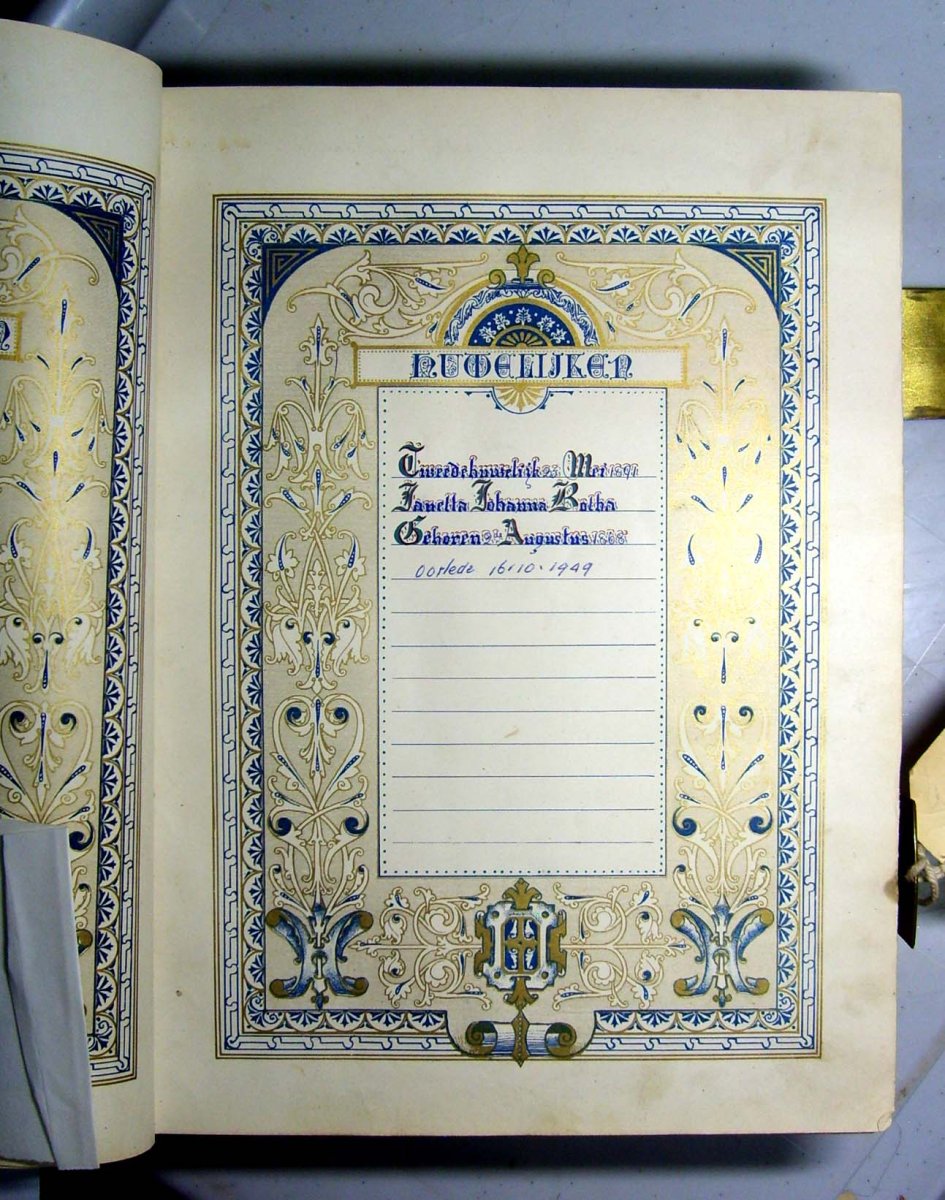 HUWELIJKEN
Tweede huwelijk 23 Mei 1891
Janetta Johanna Botha
Geboren 24 Augustus 1868
Oorlede 16.10.1949